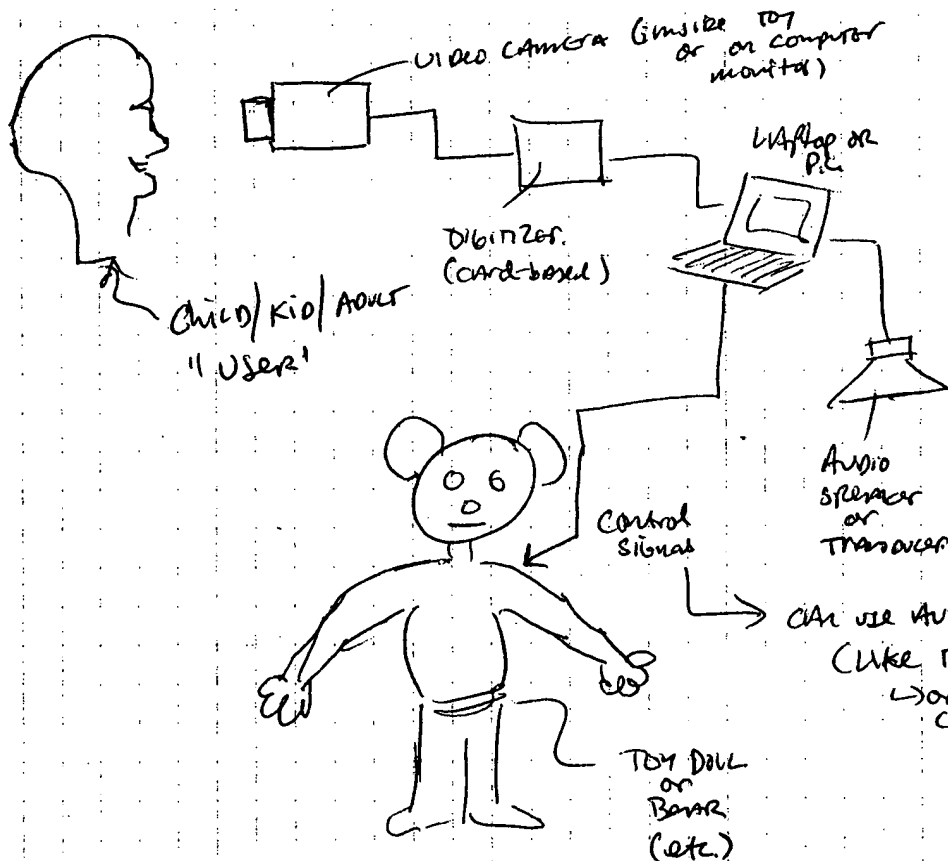 VIDEO CAMERA (inside TOY
or on computer
monitor)
LAPTOP OR
P.C.
DIGITIZER.
(card-based)
CHILD/KID/ADULT
"USER"
AUDIO
SPEAKER
or
TRANSDUCER
Control
Signal
CAN USE AU
(LIKE
or
C
TOY DOLL
or
BEAR
(etc.)